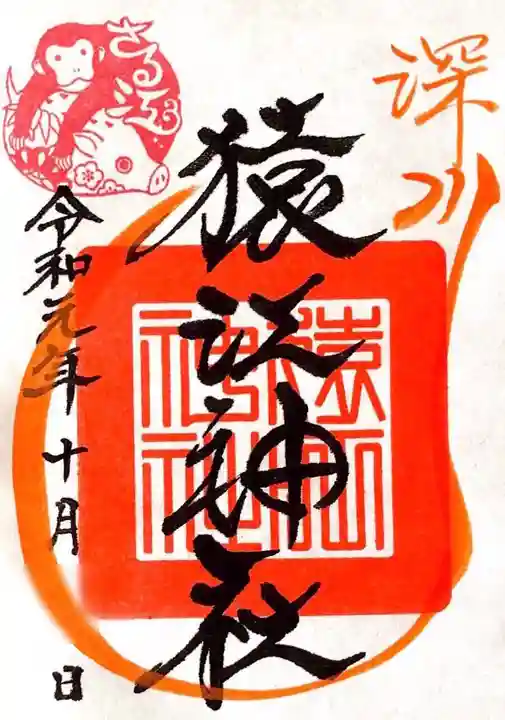 深川
猿江神社
令和元年十月 日
さる江